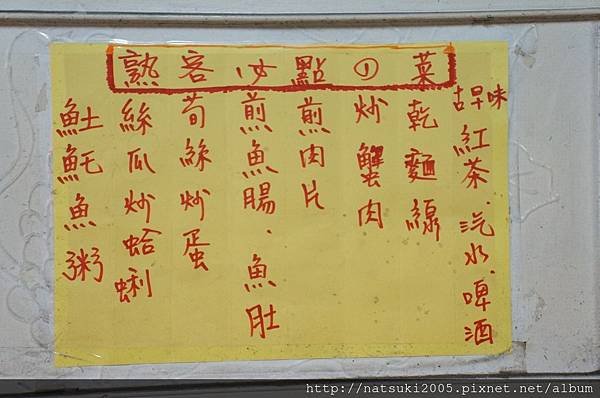 熟客必點の菜
古早味
紅茶.汽水.啤酒
乾麵線
炒蟹肉
煎肉片
煎魚腸.魚肚
荀絲炒蛋
絲瓜炒蛤蜊
魠魚粥
http://natsuki2005.pixnet.net/album